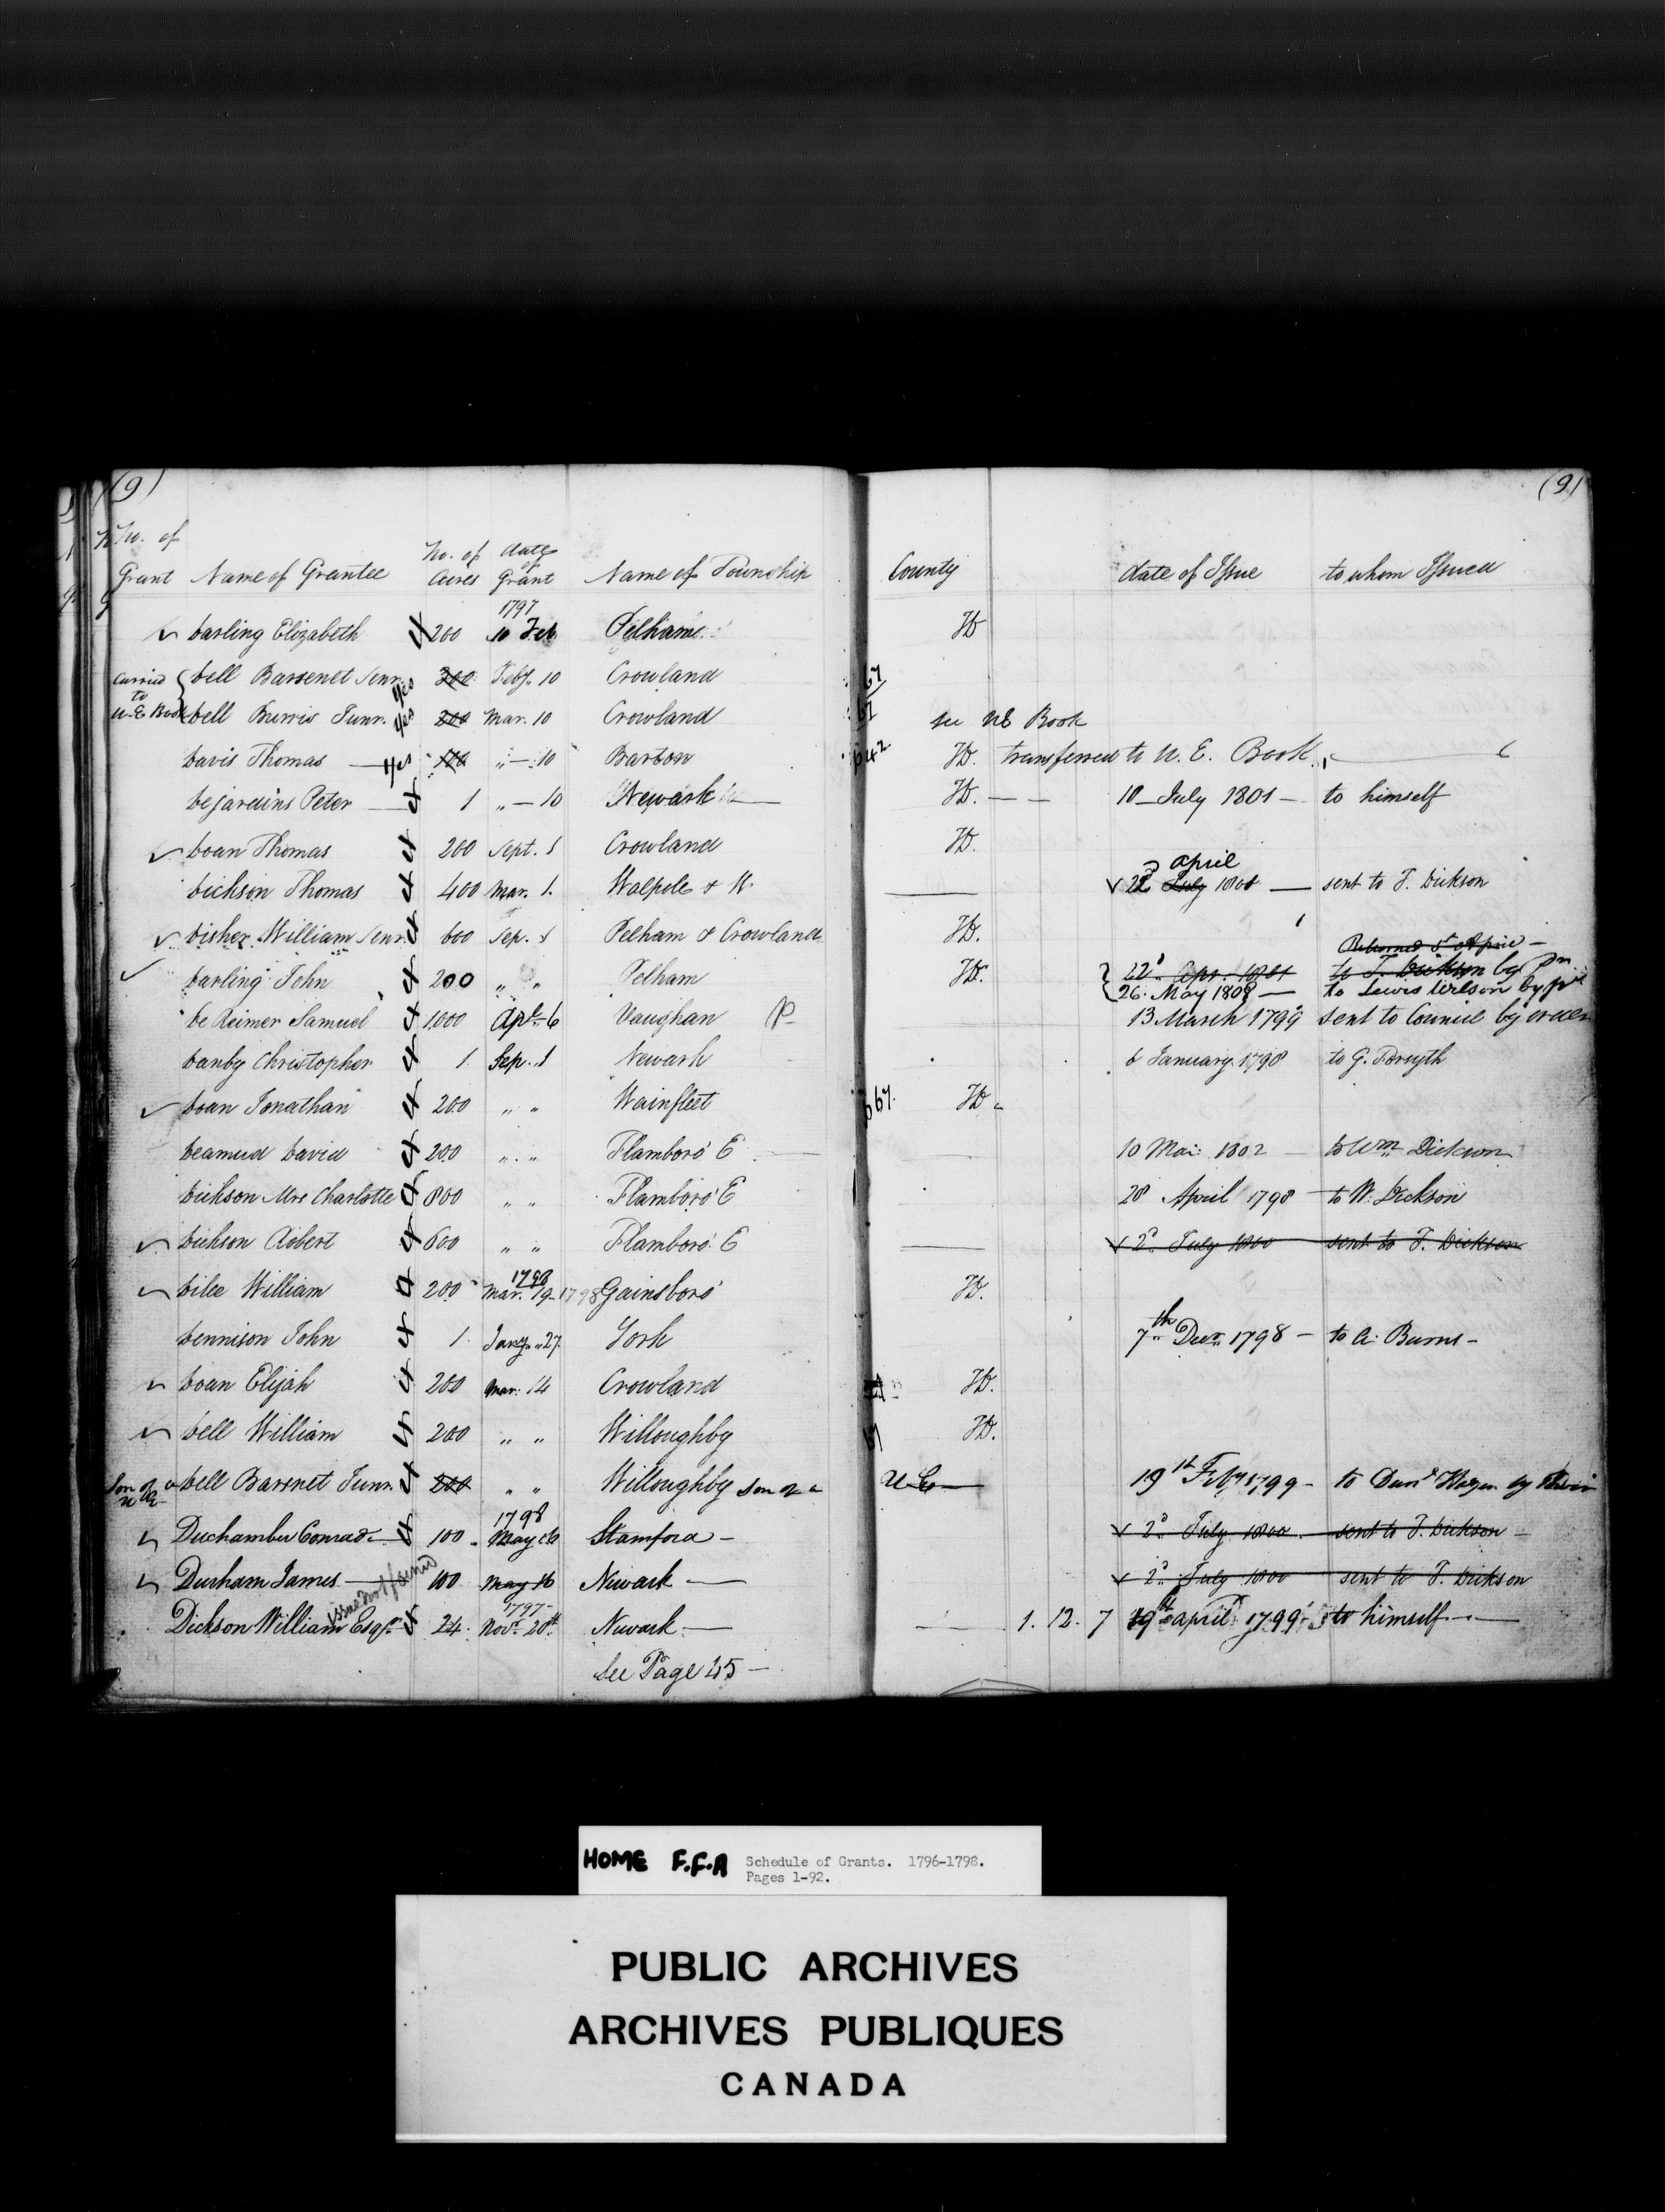 (9) (9)
No. of
Grant Name of Grantee No. of Acres date of Grant Name of Township County date of Issue to whom Issued
1797
Darling Elizabeth 200 10 Feb Pelham HD
Carried to U.E Book
Dell Barsenet Senr. Yes 200 Feby. 10 Crowland 67
Dell Burris Junr. Yes 200 Mar. 10 Crowland 67 see UE Book
Davis Thomas Yes 100 " — 10 Barton HD. transferred to U. E. Book
Dejardins Peter 1 " — 10 Newark HD. — — 10 — July 1801 — to himself
Doan Thomas 200 Sept. 1 Crowland HD.
april
Dickson Thomas 400 Mar. 1. Walpole & W. 22d July 1801 — sent to T. Dickson
Disher William Senr. 600 Sep. 1 Pelham & Crowland HD.
Darling John 200 " " Pelham HD. 22d. Apr. 1801 to T. Dickson by
26. May 1808 — to Lewis Wilson by
De Reimer Samuel 1000 Apl. 6 Vaughan P 13 March 1799 sent to Council by order
Danby Christopher 1 Sep. 1 Newark 6 January 1798 to G. Forsyth
Doan Jonathan 200 " " Wainfleet 667. HD
Deamud David 200 " " Flamboro' E 10 Mar: 1802 to Wm. Dickson
Dickson Mrs Charlotte 800 " " Flamboro' E 28 April 1798 to W. Dickson
Dickson Robert 600 " " Flamboro' E 2d. July 1800 sent to T. Dickson
1798
Dilee William 200 Mar. 19 1798 Gainsboro' HD.
Dennison John 1 Jany. 27 York 7th Decr. 1798 — to A: Burns —
Doan Elijah 200 Mar. 14 Crowland HD.
Dell William 200 " " Willoughby HD.
Son of a U E Dell Barsnet Junr. 200 " " Willoughby son of a U E 19th Feby 1799 —
1798
Duchamber Conrad 100 May 16 Stamford — 2d. July 1800 sent to T. Dickson —
Durham James 100 May 16 Newark — 2d. July 1800 sent to T. Dickson
1797
Dickson William Esqr. 24 Novr. 20th. Newark — 1. 12. 7 19th April 1799 to himself —
See Page 45 —
HOME F.F.A Schedule of Grants. 1796-1798.
Pages 1-92.
PUBLIC ARCHIVES
ARCHIVES PUBLIQUES
CANADA